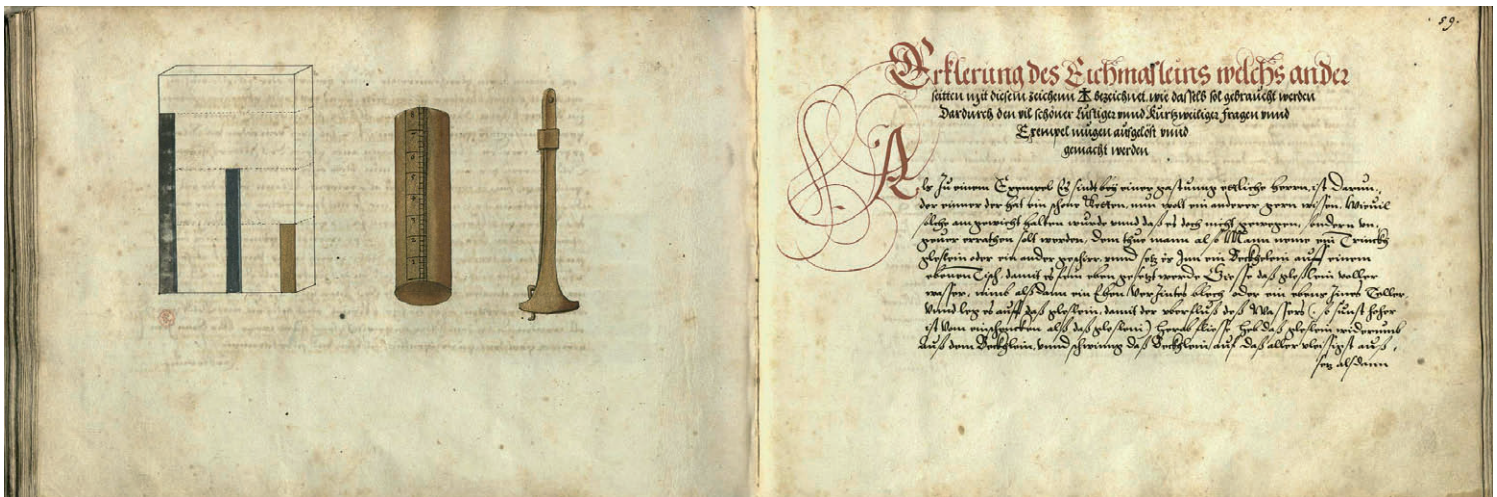 59.
Erklerung des Eichmaßleins welchs ander
seitten mit diesem zeichenn bezeichnet wie dasselb sol gebraucht werden
Dardurch den vil schöner lustiger vnnd Kurtzweiliger fragen vnnd
Exempel mugen aufgelöst vnnd
gemacht werden
Als Zu einem Exempel Es sindt bey einer gastung ettliche herrn, ist Darun,
der einner der hat ein schöne Ketten, nun wolt ein anderer gern wissen, Wieuil
solche am gewicht halten wurde vnnd daß es doch nicht gewogen, sondern vn,
gefer errathen solt werden, dem thue mann also Mann neme ein Trinckh
gleslein oder ein ander geschirr, vnnd setz es Inn ein Beckhlein auff einem
ebenen Tisch, damit es fein eben gesetzt werde Giesse daß gleßlein voller
wasser, nimb alßdann ein Eben Verzintes blech oder ein eben Zines Teller,
Vnnd leg es auff daß gleslein, damit der vberfluß deß Wassers so sunst höher
ist Vom einschencken alß daß gleslein) herab fliesse, heb daß gleslein widerumb
Auß dem Beckhlein, vnnd schwing daß Beckhlein auf daß aller vleissigst auß,
setz alßdann